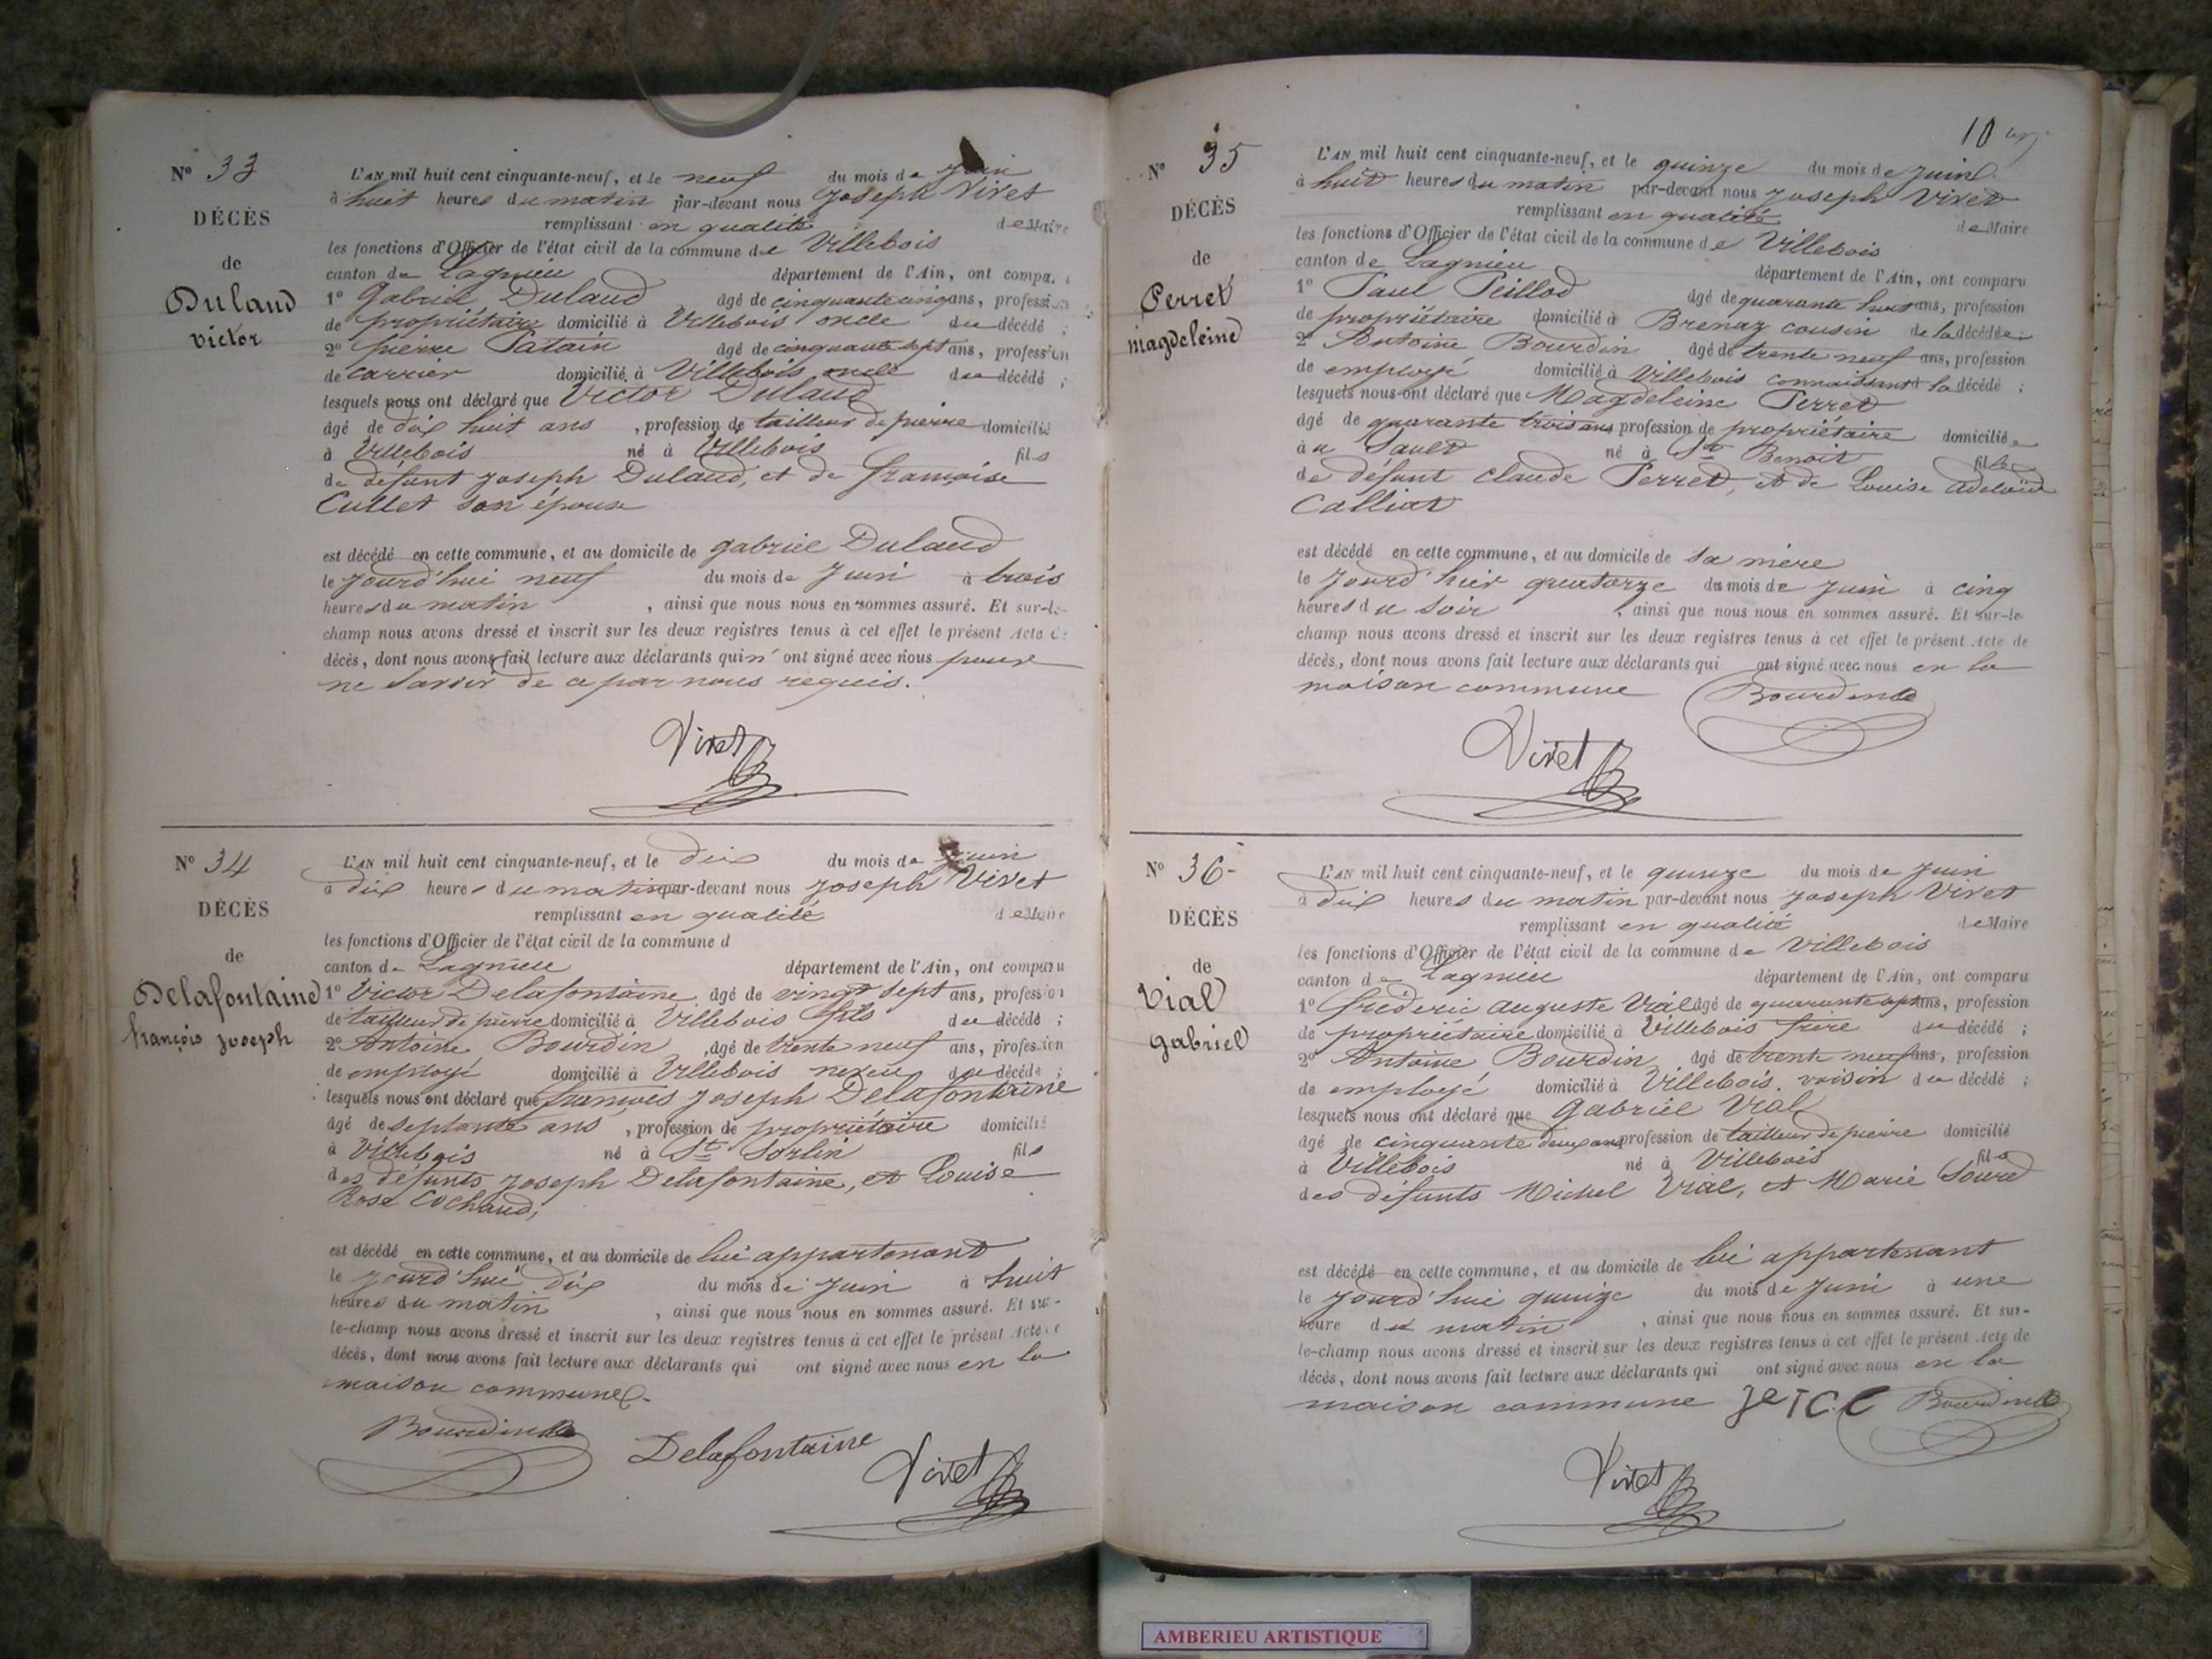 N° 33
DÉCÈS
de
Dulaud
victor
L'AN mil huit cent cinquante-neuf, et le neuf du mois de Juin
à huit heures du matin par-devant nous Joseph Vivet
remplissant en qualité de Maire
les fonctions d'Officier de l'état civil de la commune de Villebois
canton de Lagnieu département de l'Ain, ont compa
1° Gabriel Dulaud âgé de cinquante cinq ans, profession
de propriétaire domicilié à Villebois oncle du décédé ;
2° pierre Patain âgé de cinquante sept ans, profession
de carrier domicilié à Villebois oncle du décédé ;
lesquels nous ont déclaré que Victor Dulaud
âgé de dix huit ans , profession de tailleur de pierre domicilié
à Villebois né à Villebois fils
de défunt Joseph Dulaud, et de françoise
Cullet son épouse
est décédé en cette commune, et au domicile de gabriel Dulaud
le jourd'hui neuf du mois de Juin à trois
heures du matin , ainsi que nous nous en sommes assuré. Et sur-le-
champ nous avons dressé et inscrit sur les deux registres tenus à cet effet le présent Acte de
décès, dont nous avons fait lecture aux déclarants qui n'ont signé avec nous pour
ne savoir de ce par nous requis.
Vivet
N° 34
DÉCÈS
de
Delafontaine
françois joseph
L'AN mil huit cent cinquante-neuf, et le dix du mois de Juin
à dix heures du matin par-devant nous Joseph Vivet
remplissant en qualité de Maire
les fonctions d'Officier de l'état civil de la commune d
canton de Lagnieu département de l'Ain, ont comparu
1° Victor Delafontaine âgé de vingt sept ans, profession
de tailleur de pierre domicilié à Villebois fils du décédé ;
2° Antoine Bourdin , âgé de trente neuf ans, profession
de employé domicilié à Villebois neveu du décédé ;
lesquels nous ont déclaré que françois Joseph Delafontaine
âgé de septante ans , profession de propriétaire domicilié
à Villebois né à St Sorlin fils
des défunts Joseph Delafontaine, et Louise
Rose Cochaud,
est décédé en cette commune, et au domicile de lui appartenant
le jourd'hui dix du mois de Juin à huit
heures du matin , ainsi que nous nous en sommes assuré. Et sur-
le-champ nous avons dressé et inscrit sur les deux registres tenus à cet effet le présent Acte de
décès, dont nous avons fait lecture aux déclarants qui ont signé avec nous en la
maison commune.
Bourdin
Delafontaine
Vivet
10
N° 35
DÉCÈS
de
Perret
magdeleine
L'AN mil huit cent cinquante-neuf, et le quinze du mois de Juin
à huit heures du matin par-devant nous Joseph Vivet
remplissant en qualité de Maire
les fonctions d'Officier de l'état civil de la commune de Villebois
canton de Lagnieu département de l'Ain, ont comparu
1° Paul Peillod âgé de quarante huit ans, profession
de propriétaire domicilié à Brenaz cousin de la décédée ;
2° Antoine Bourdin âgé de trente neuf ans, profession
de employé domicilié à Villebois connaissant la décédé ;
lesquels nous ont déclaré que Magdeleine Perret
âgé de quarante trois ans profession de propriétaire domiciliée
au Sault né à St Benoit fille
de défunt Claude Perret, et de Louise Adelaïde
Calliat
est décédé en cette commune, et au domicile de sa mère
le jourd'hier quatorze du mois de Juin à cinq
heures du soir , ainsi que nous nous en sommes assuré. Et sur-le-
champ nous avons dressé et inscrit sur les deux registres tenus à cet effet le présent Acte de
décès, dont nous avons fait lecture aux déclarants qui ont signé avec nous en la
maison commune
Bourdin
Vivet
N° 36
DÉCÈS
de
Vial
gabriel
L'AN mil huit cent cinquante-neuf, et le quinze du mois de Juin
à dix heures du matin par-devant nous Joseph Vivet
remplissant en qualité de Maire
les fonctions d'Officier de l'état civil de la commune de Villebois
canton de Lagnieu département de l'Ain, ont comparu
1° frédéric auguste Vial âgé de quarante sept ans, profession
de propriétaire domicilié à Villebois frère du décédé ;
2° Antoine Bourdin âgé de trente neuf ans, profession
de employé domicilié à Villebois. voisin du décédé ;
lesquels nous ont déclaré que Gabriel Vial
âgé de cinquante deux ans profession de tailleur de pierre domicilié
à Villebois né à Villebois fils
des défunts Michel Vial, et Marie Sourd
est décédé en cette commune, et au domicile de lui appartenant
le jourd'hui quinze du mois de Juin à une
heure du matin , ainsi que nous nous en sommes assuré. Et sur-
le-champ nous avons dressé et inscrit sur les deux registres tenus à cet effet le présent Acte de
décès, dont nous avons fait lecture aux déclarants qui ont signé avec nous en la
maison commune
Bourdin
Vivet
AMBERIEU ARTISTIQUE